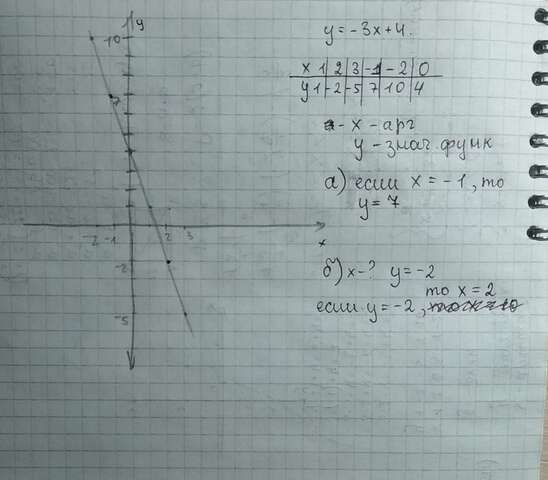 y = -3x+4.
x 1 2 3 -1 -2 0
y 1 -2 -5 7 10 4
- x - арг
y - знач. функ
а) если x = -1, то
y = 7
б) x-? y = -2
то x = 2
если y = -2,
y
10
7
-2 -1 2 3
x
-2
-5